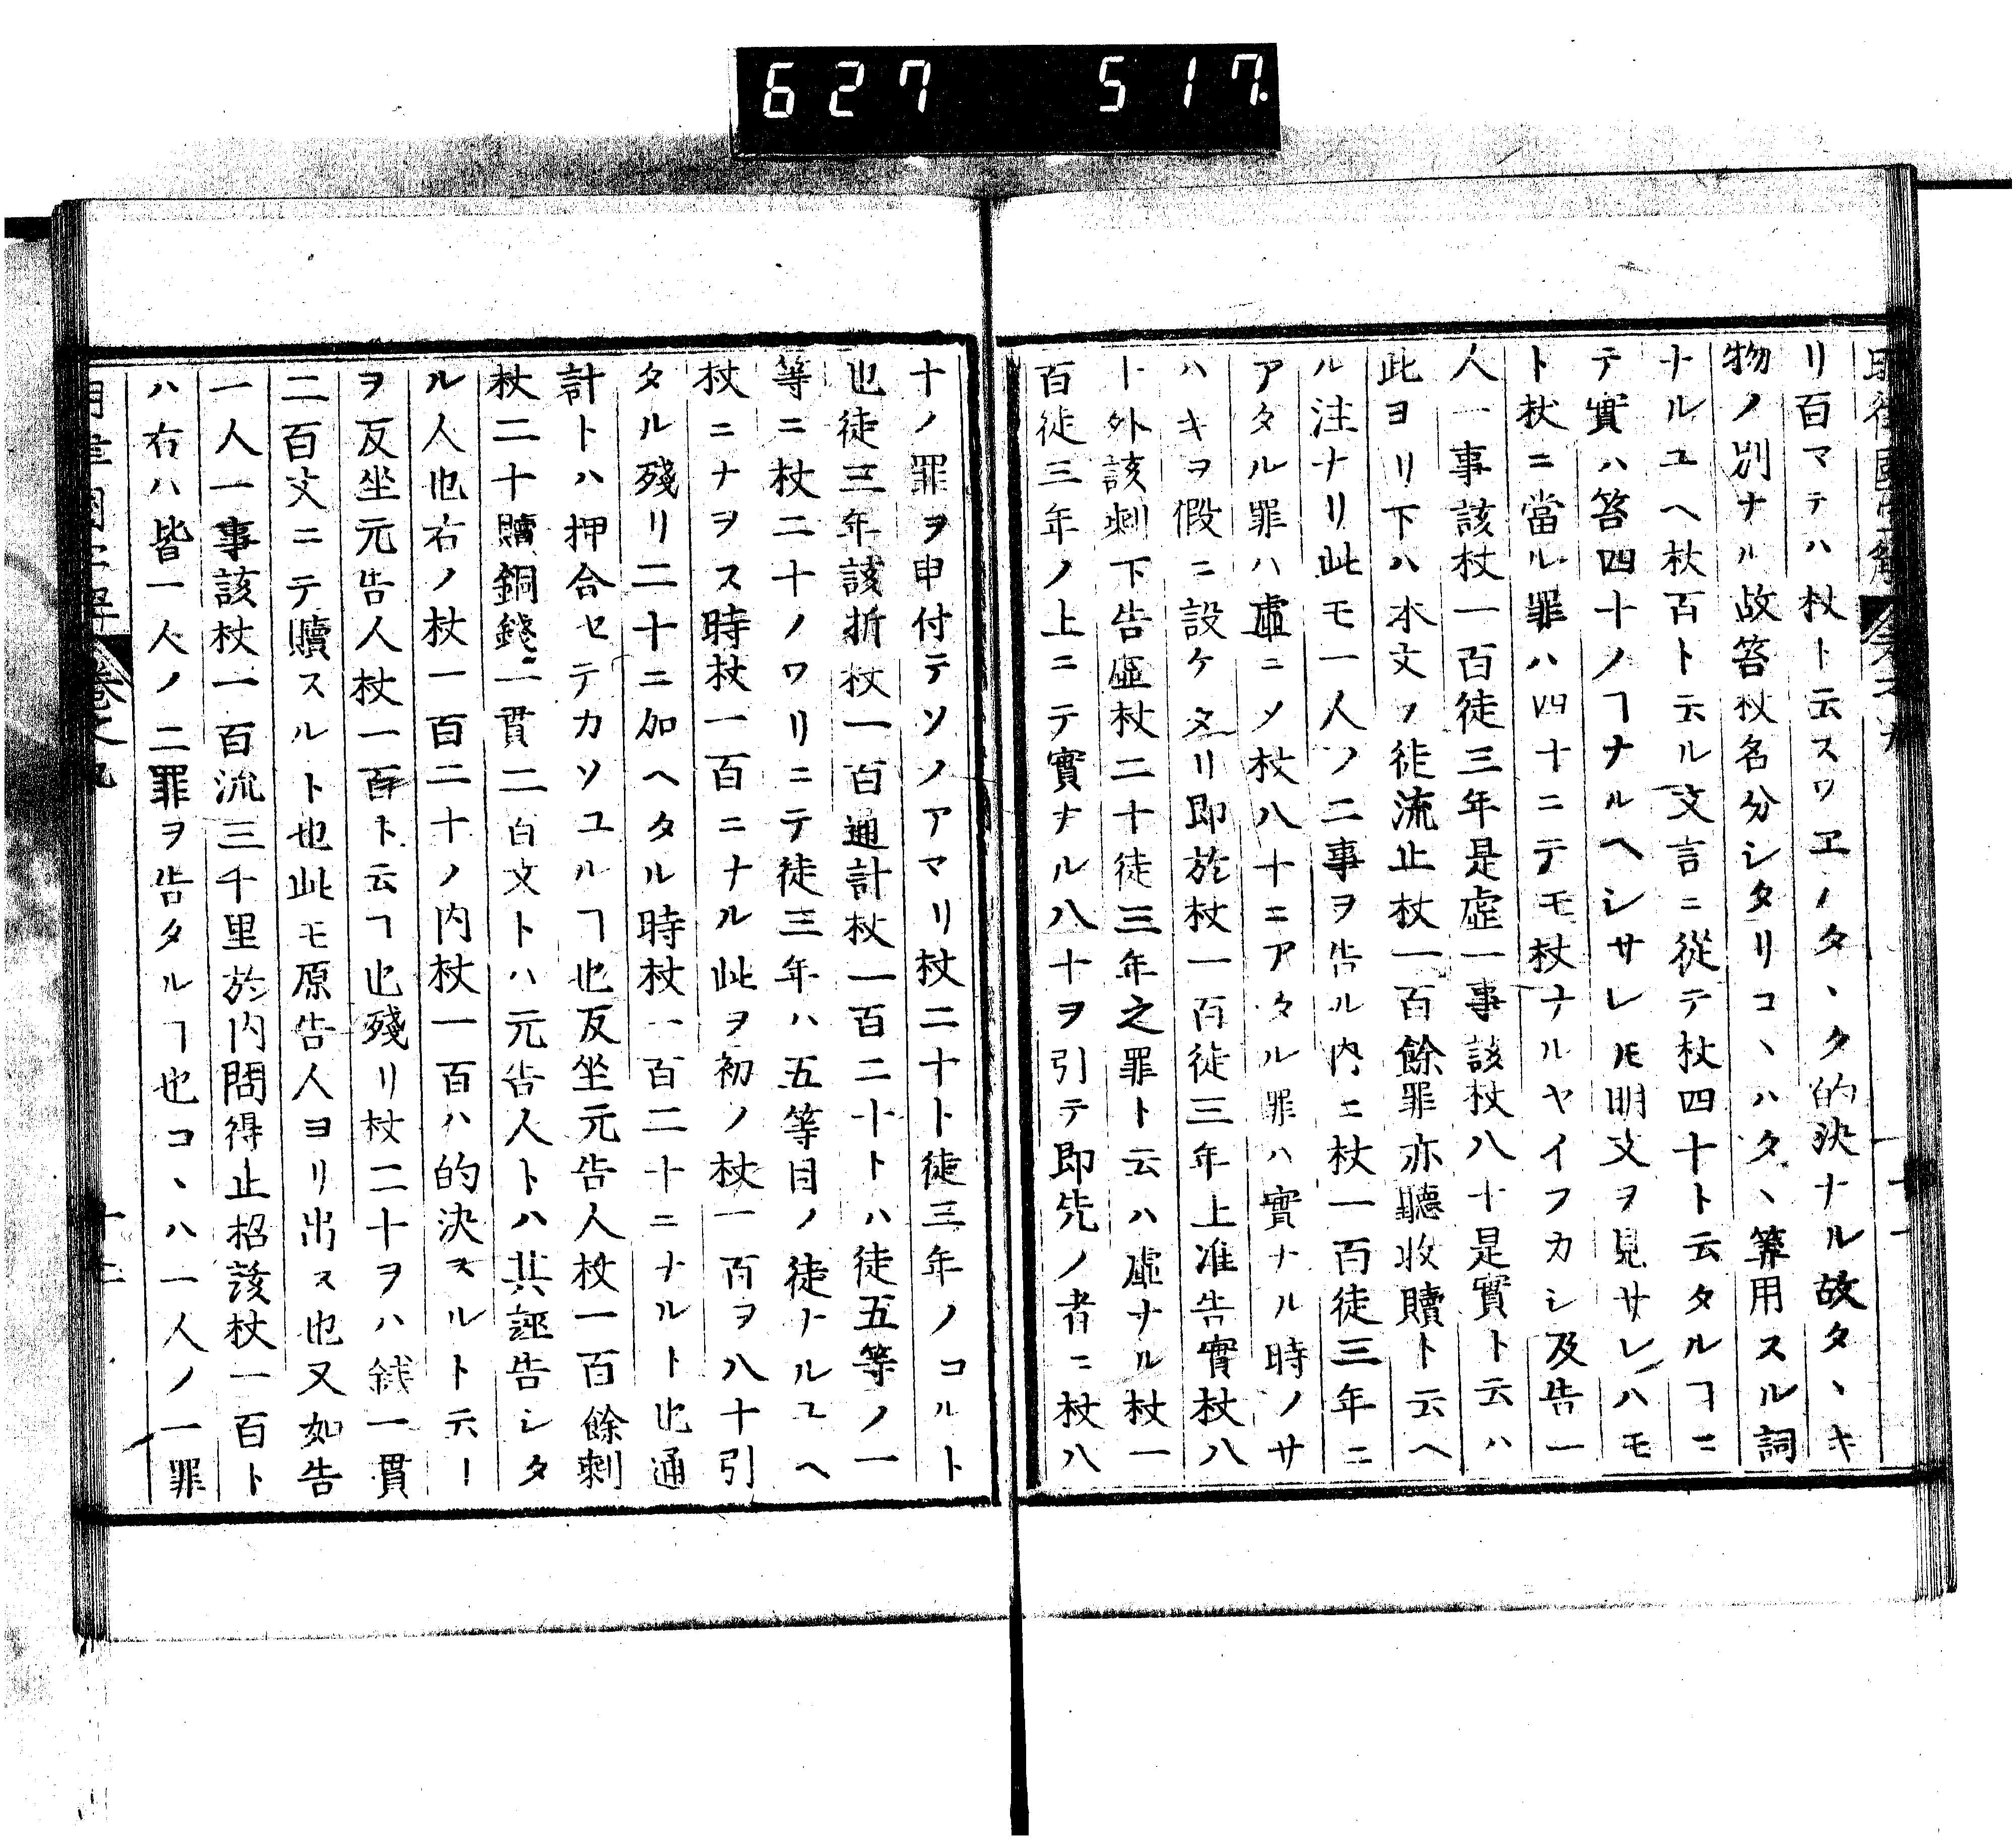 627 517.
リ百マテハ杖ト云スワヱノタヽク的決ナル故タヽキ
物ノ別ナル故笞杖名分シタリコヽハタヽ算用スル詞
ナルユヘ杖百ト云ル文言ニ從テ杖四十ト云タルヿニ
テ實ハ笞四十ノヿナルヘシサレ𪜈明文ヲ見サレハモ
ト杖ニ當ル罪ハ四十ニテモ杖ナルヤイフカシ及告一
人一事該杖一百徒三年是虚一事該杖八十是實ト云ハ
此ヨリ下ハ本文ノ徒流止杖一百餘罪亦聽收贖ト云ヘ
ル注ナリ此モ一人ノ二事ヲ告ル内ニ杖一百徒三年ニ
アタル罪ハ虚ニソ杖八十ニアタル罪ハ實ナル時ノサ
ハキヲ假ニ設ケタリ即於杖一百徒三年上准告實杖八
ト外該剰下告虚杖二十徒三年之罪ト云ハ虚ナル杖一
百徒三年ノ上ニテ實ナル八十ヲ引テ即先ノ者ニ杖八
十ノ罪ヲ申付テソノアマリ杖二十ト徒三年ノコルト
也徒三年該折杖一百通計杖一百二十トハ徒五等ノ一
等ニ杖二十ノワリニテ徒三年ハ五等目ノ徒ナルユヘ
杖ニナヲス時杖一百ニナル此ヲ初ノ杖一百ヲ八十引
タル殘リ二十ニ加ヘタル時杖一百二十ニナルト也通
計トハ押合セテカソユルヿ也反坐元告人杖一百餘剰
杖二十贖銅錢二貫二百文トハ元告人トハ其誣告シタ
ル人也右ノ杖一百二十ノ内杖一百ハ的決スルト云ー
ヲ反坐元告人杖一百ト云ヿ也殘リ杖二十ヲハ錢一貫
二百文ニテ贖スルト也此モ原告人ヨリ出ス也又如告
一人一事該杖一百流三千里於内問得止招該杖一百ト
ハ右ハ皆一人ノ二罪ヲ告タルヿ也コヽハ一人ノ一罪